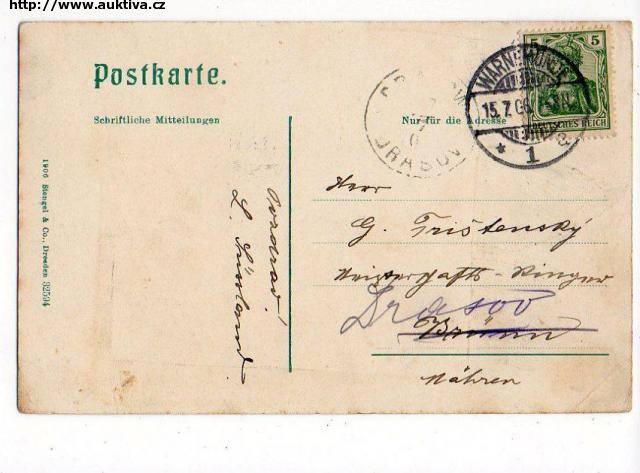 http://www.auktiva.cz
Postkarte.
Schriftliche Mitteilungen
Nur für die Adresse
5 5
DEUTSCHES REICH
WARNEMÜNDE
15.7.06
* 1
DRASOV
1906 Stengel & Co., Dresden 32594
Pozdrav!
Herr
G. Trištenský
Meisterschafts-Ringer
Drasov
Brünn
Mähren